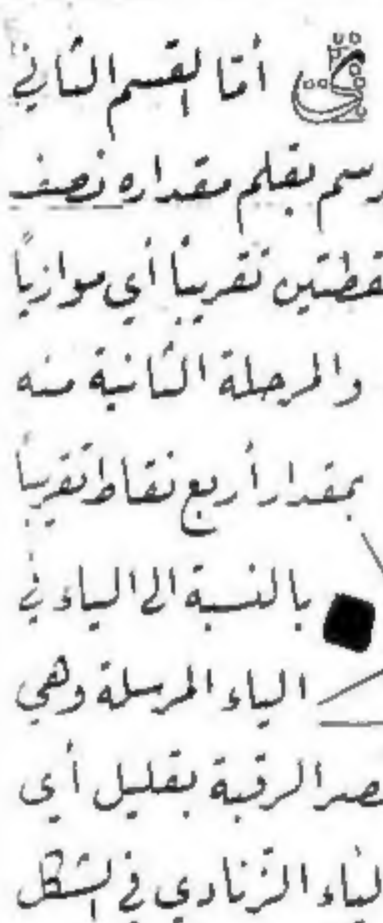 أمّا القسم الثاني
رسم بقلم مقداره نصف
قطتين تقريباً أي موازياً
والمرحلة الثانية منه
بمقدار أربع نقاط تقريباً
بالنسبة الى الياء في
الياء المرسلة وهي
الرقبة بقليل أي
لياء الزنادي في الشكل